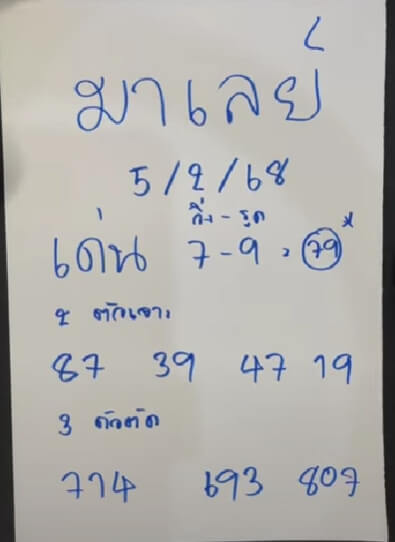 มาเลย์
5/2/68
กิ่ง - รูด
เด่น 7-9, 79*
2 ตัวเจาะ
87 39 47 19
3 ตัวตัด
714 693 807